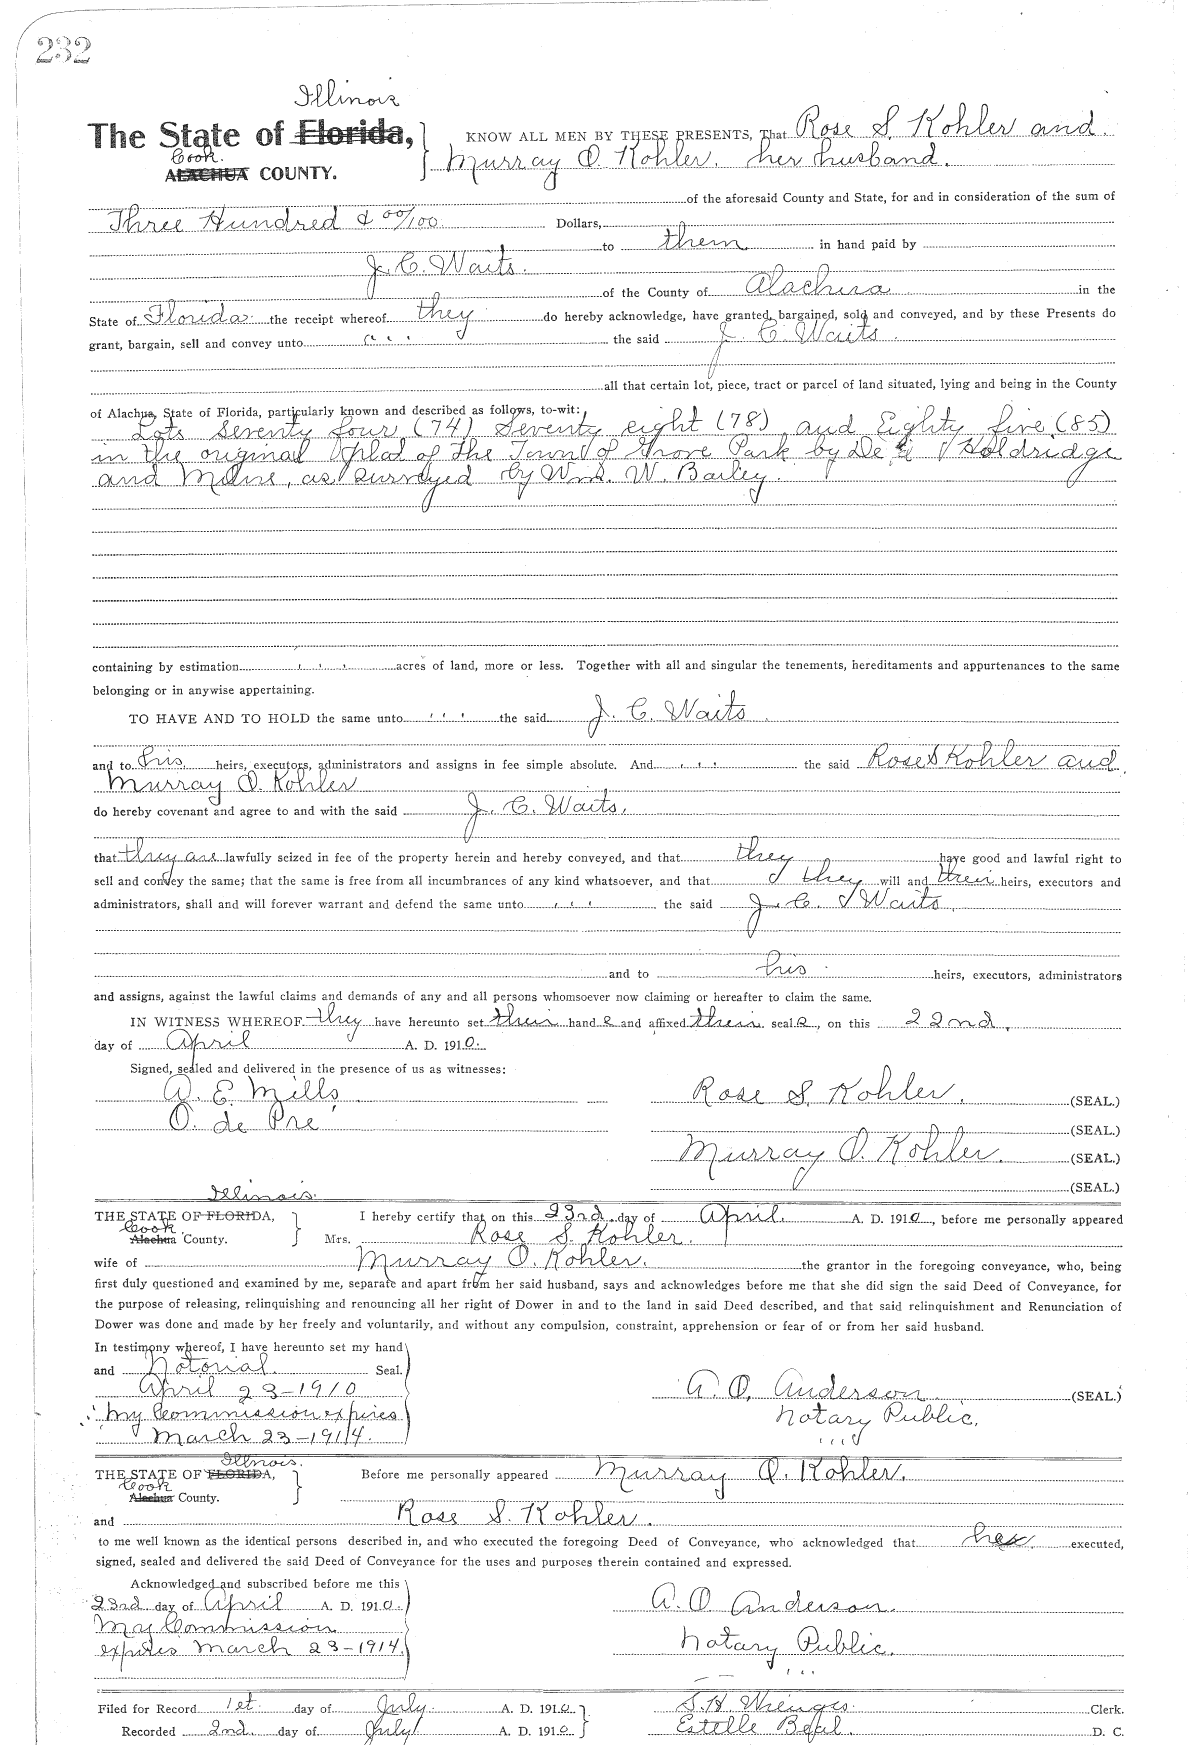 232
Illinois
The State of Florida,
KNOW ALL MEN BY THESE PRESENTS, That Rose S. Kohler and
Cook.
ALACHUA COUNTY.
Murray O. Kohler. her husband.
of the aforesaid County and State, for and in consideration of the sum of
Three Hundred & 00/100 Dollars,
to them in hand paid by
J. C. Waits.
of the County of Alachua in the
State of Florida the receipt whereof they do hereby acknowledge, have granted, bargained, sold and conveyed, and by these Presents do
grant, bargain, sell and convey unto " " " the said J. C. Waits.
all that certain lot, piece, tract or parcel of land situated, lying and being in the County
of Alachua, State of Florida, particularly known and described as follows, to-wit:
Lots Seventy four (74) Seventy eight (78) and Eighty five (85)
in the original plat of The Town of Grove Park by Holdridge
and as surveyed by Wm. W. Bailey.
containing by estimation , , , acres of land, more or less. Together with all and singular the tenements, hereditaments and appurtenances to the same
belonging or in anywise appertaining.
TO HAVE AND TO HOLD the same unto ' ' ' the said J. C. Waits.
and to his heirs, executors, administrators and assigns in fee simple absolute. And , , , the said Rose S Kohler and
Murray O. Kohler
do hereby covenant and agree to and with the said J. C. Waits.
that they are lawfully seized in fee of the property herein and hereby conveyed, and that they have good and lawful right to
sell and convey the same; that the same is free from all incumbrances of any kind whatsoever, and that they will and their heirs, executors and
administrators, shall and will forever warrant and defend the same unto , , , the said J. C. Waits.
and to his heirs, executors, administrators
and assigns, against the lawful claims and demands of any and all persons whomsoever now claiming or hereafter to claim the same.
IN WITNESS WHEREOF they have hereunto set their hand s and affixed their seal s, on this 22nd.
day of April A. D. 1910.
Signed, sealed and delivered in the presence of us as witnesses:
A. E. Mills
Rose S. Kohler. (SEAL.)
O. de Pre'
(SEAL.)
Murray O. Kohler. (SEAL.)
(SEAL.)
Illinois.
THE STATE OF FLORIDA, I hereby certify that on this 23rd. day of April. A. D. 1910, before me personally appeared
Cook
Alachua County. Mrs. Rose S. Kohler.
wife of Murray O. Kohler. the grantor in the foregoing conveyance, who, being
first duly questioned and examined by me, separate and apart from her said husband, says and acknowledges before me that she did sign the said Deed of Conveyance, for
the purpose of releasing, relinquishing and renouncing all her right of Dower in and to the land in said Deed described, and that said relinquishment and Renunciation of
Dower was done and made by her freely and voluntarily, and without any compulsion, constraint, apprehension or fear of or from her said husband.
In testimony whereof, I have hereunto set my hand
and Notorial Seal.
April 23-1910
A. O. Anderson. (SEAL.)
My Commission expires
Notary Public.
March 23-1914.
Illinois.
THE STATE OF FLORIDA, Before me personally appeared Murray O. Kohler.
Cook
Alachua County.
and Rose S. Kohler.
to me well known as the identical persons described in, and who executed the foregoing Deed of Conveyance, who acknowledged that executed,
signed, sealed and delivered the said Deed of Conveyance for the uses and purposes therein contained and expressed.
Acknowledged and subscribed before me this
23rd day of April A. D. 1910.
A. O Anderson.
My Commission
expires March 23-1914.
Notary Public.
Filed for Record 1st. day of July. A. D. 1910 S. H. Wienges. Clerk.
Recorded 2nd. day of July A. D. 1910 Estelle D. C.